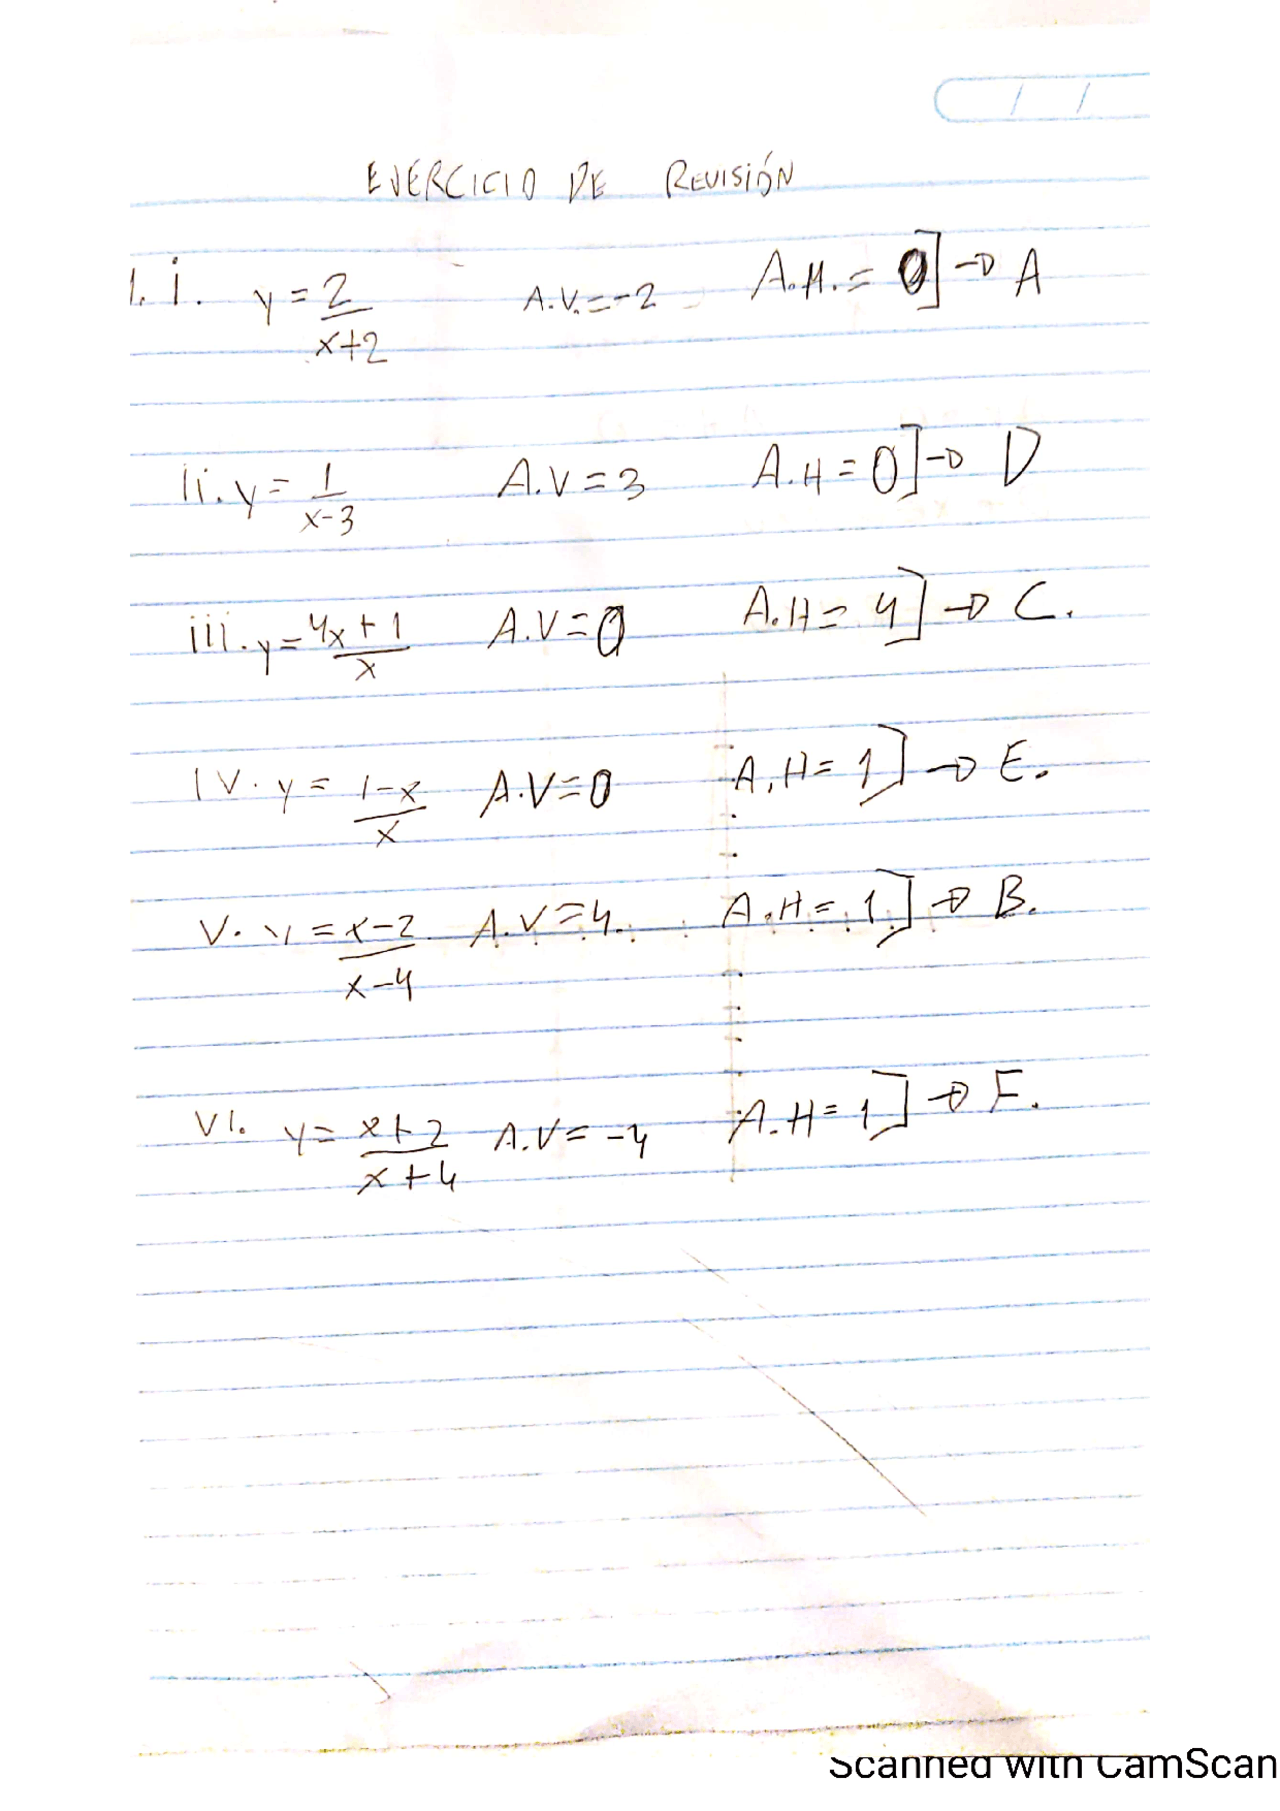 EJERCICIO DE REVISIÓN
1. i. y = 2/(x+2) A.V. = -2 A.H. = 0] → A
ii. y = 1/(x-3) A.V = 3 A.H = 0] → D
iii. y = (4x+1)/x A.V = 0 A.H = 4] → C.
IV. y = (1-x)/x A.V = 0 A.H = 1] → E.
V. y = (x-2)/(x-4) A.V = 4. A.H = 1] → B.
VI. y = (x+2)/(x+4) A.V = -4 A.H = 1] → F.
Scanned with CamScan